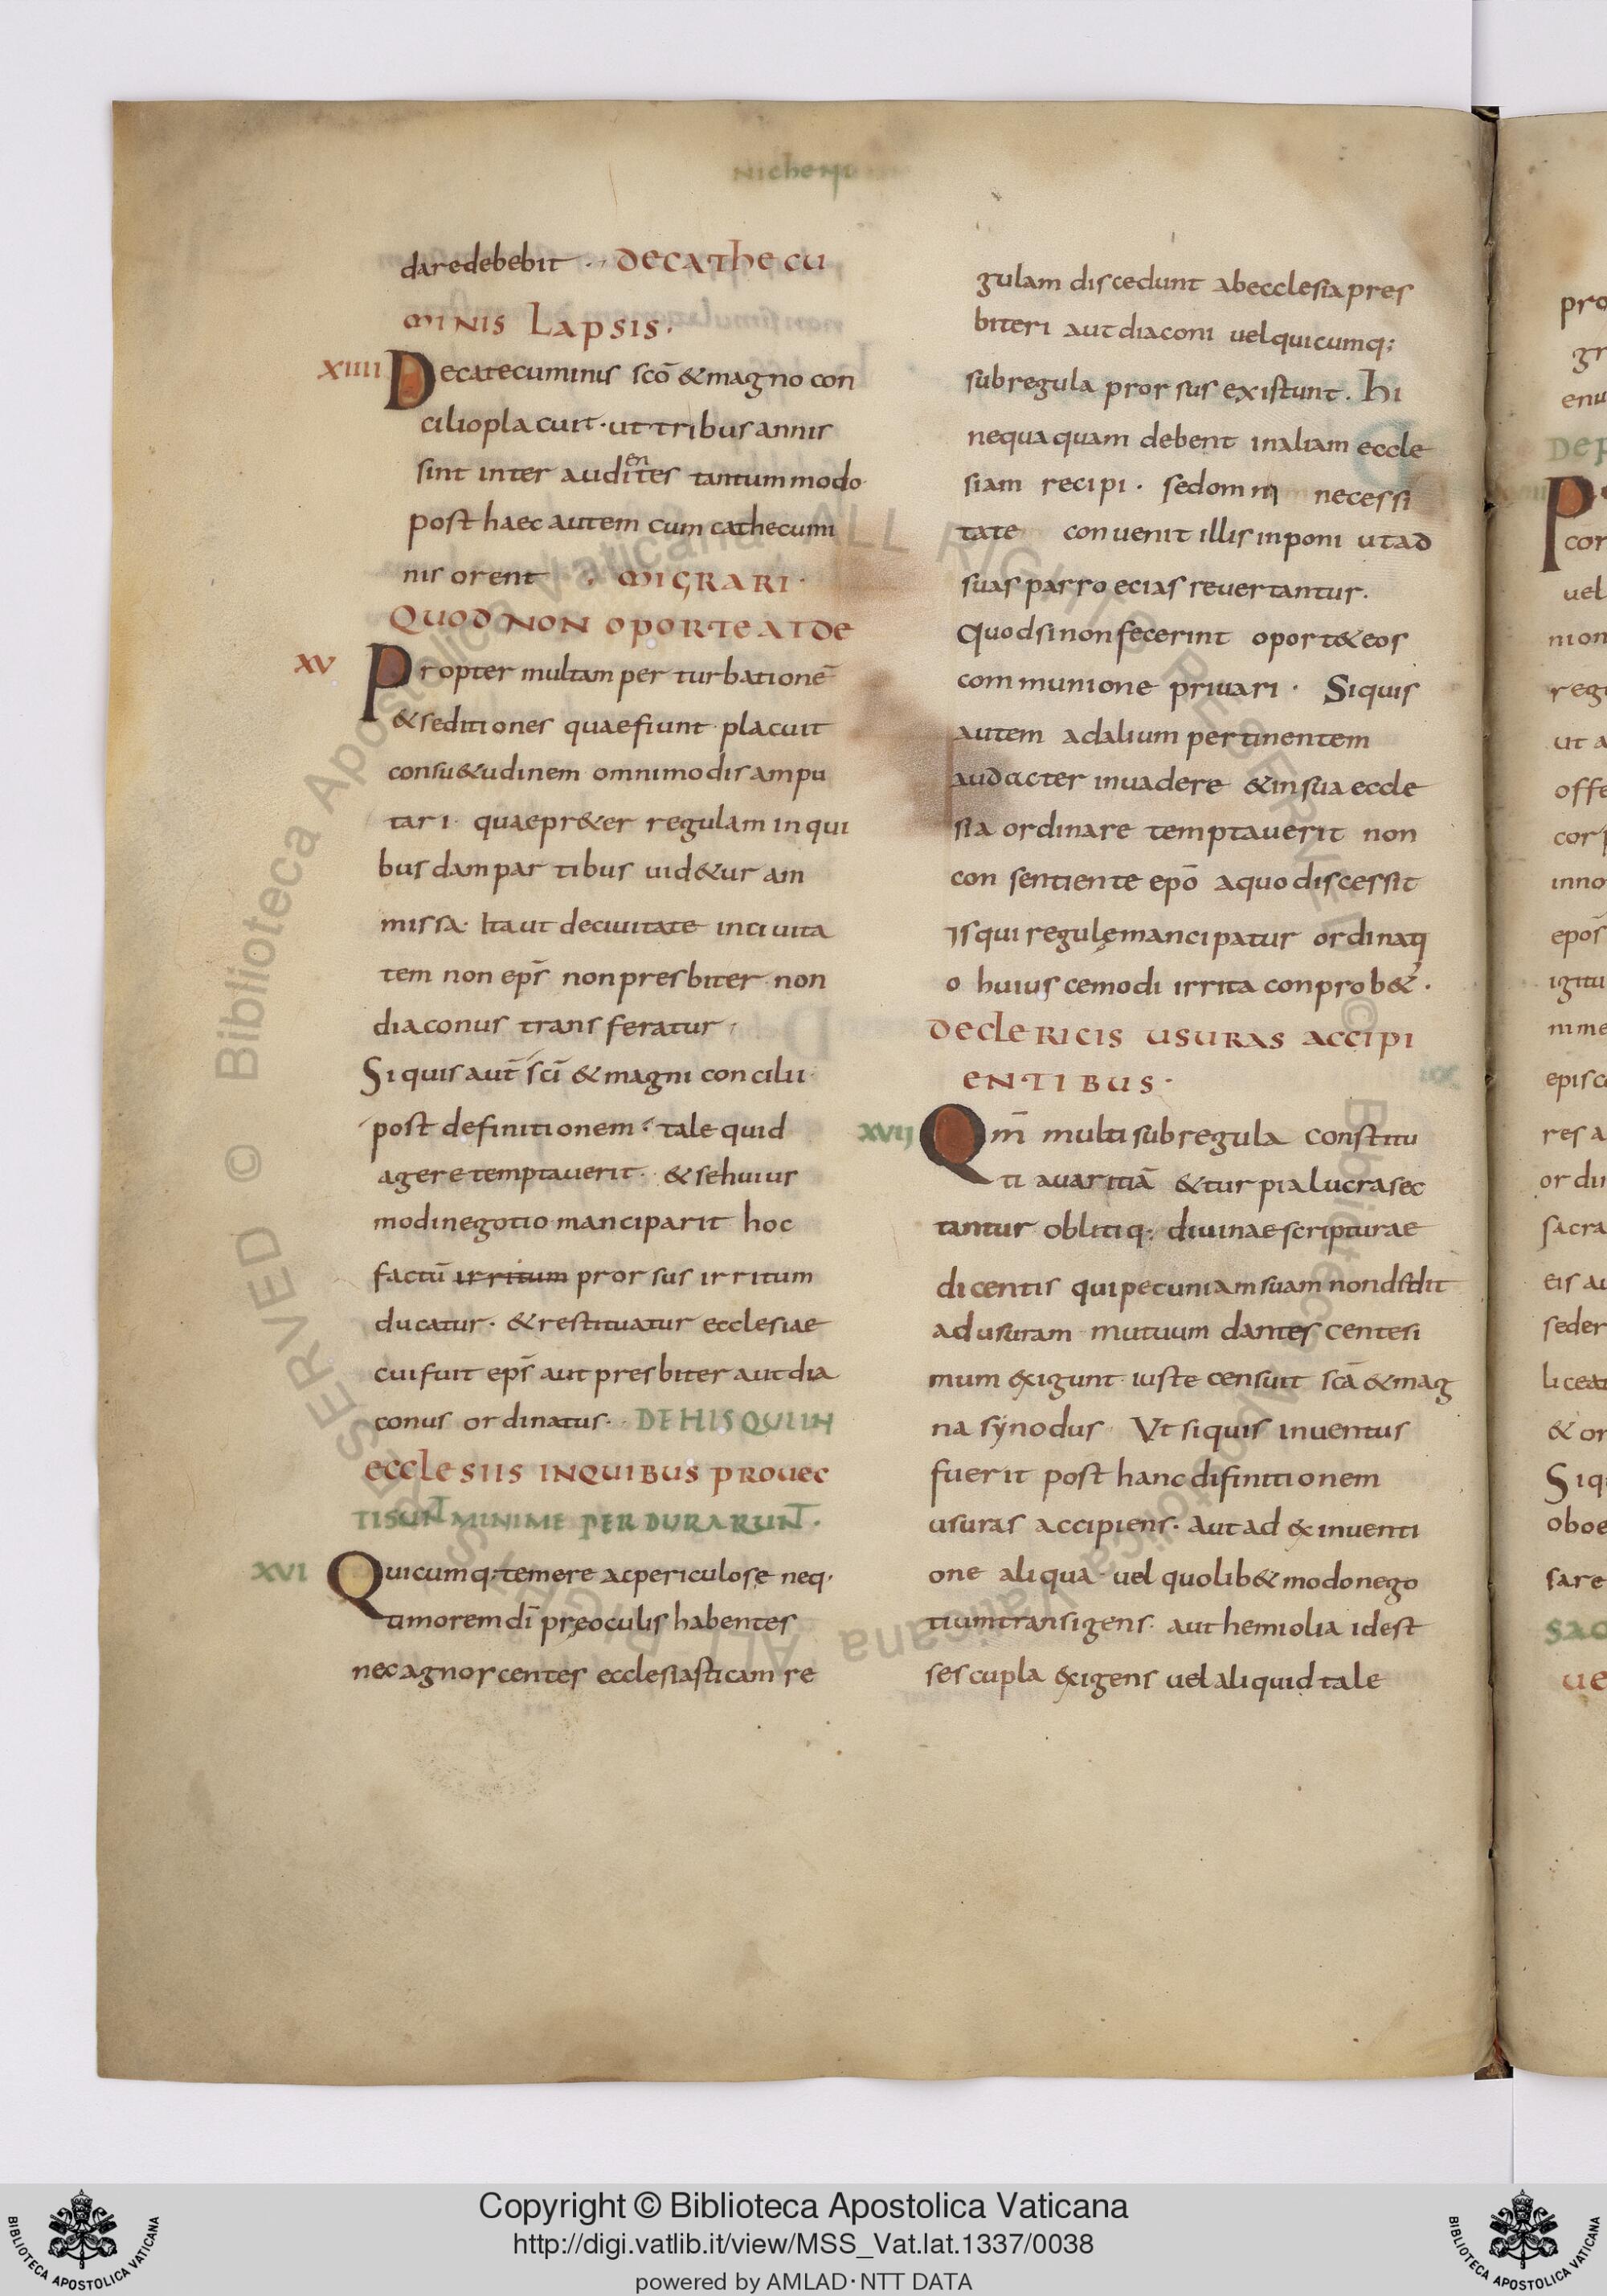 Nichenu
dare debebit · DE CATHECU
MINIS LAPSIS ·
XIIII De catecuminis scō & magno con
cilio placuit · ut tribus annis
sint inter auditentes tantum modo
post haec autem cum cathecumi
nis orent · MIGRARI ·
QUOD NON OPORTEAT DE
XV Propter multam perturbationē
& seditiones quae fiunt placuit
consu&udinem omnimodis ampu
tari · quae pr&er regulam in qui
busdam partibus uid&ur am
missa · Ita ut de ciuitate in ciuita
tem non ep̄s non presbiter non
diaconus transferatur ·
Si quis aut̄ sc̄i & magni concilii
post definitionem · tale quid
agere temptauerit · & se huius
modi negotio manciparit hoc
factū irritum prorsus irritum
ducatur · & restituatur ecclesiae
cui fuit ep̄s aut presbiter aut dia
conus ordinatus · DE HIS QUI IN
ECCLESIIS IN QUIBUS PROUEC
TI SUNT MINIME PERDURARUNT ·
XVI Quicumq; temere ac periculose neq·
timorem dī pręoculis habentes
nec agnorcentes ecclesiasticam re
gulam discedunt ab ecclesia pres
biteri aut diaconi uel quicumq;
sub regula prorsus existunt . hi
nequaquam debent in aliam eccle
siam recipi · sed omni necessi
tate conuenit illis inponi ut ad
suas parroecias reuertantur.
Quod si non fecerint oport& eos
communione priuari · Si quis
autem ad alium pertinentem
audacter inuadere & in sua eccle
sia ordinare temptauerit non
consentiente epō a quo discessit
is qui regulę mancipatur ordinati
o huiuscemodi irrita conprob& ·
DE CLERICIS USURAS ACCIPI
ENTIBUS ·
XVII Qm̄ multi sub regula constitu
ti auaritiā & turpia lucra sec
tantur oblitiq; diuinae scripturae
dicentis qui pecuniam suam non dedit
ad usuram mutuum dantes centesi
mum exigunt iuste censuit scā & mag
na synodus · Ut si quis inuentus
fuerit post hanc difinitionem
usuras accipiens · aut ad exinuenti
one aliqua uel quolib& modo nego
tium transigens · aut hemiolia id est
sescupla exigens uel aliquid tale
pro
gr
enu
DE P
P
cor
uel
nion
regu
ut a
offe
corp
inno
epōs
igitu
nime
episc
res a
ordi
sacra
eis au
seder
licea
& or
Si qu
oboe
sare
SAC
UE
© Biblioteca Apostolica Vaticana ALL RIGHTS RESERVED © Biblioteca Apostolica Vaticana ALL RIGHTS RESERVED
BIBLIOTECA APOSTOLICA VATICANA
Copyright © Biblioteca Apostolica Vaticana
http://digi.vatlib.it/view/MSS_Vat.lat.1337/0038
powered by AMLAD·NTT DATA
BIBLIOTECA APOSTOLICA VATICANA